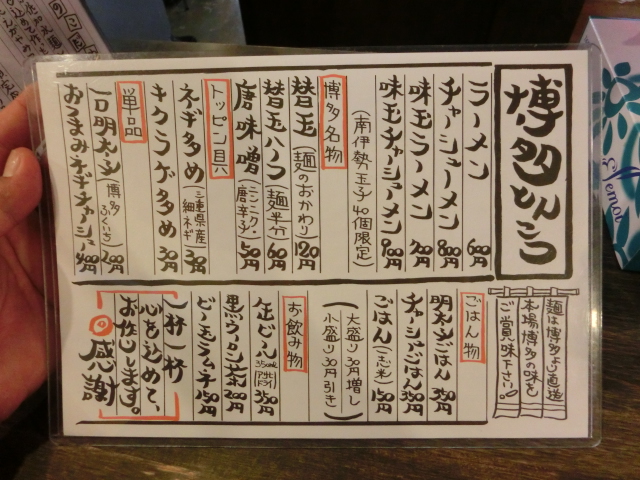 博多とんこつ
ラーメン 600円
チャーシューメン 800円
味玉ラーメン 700円
味玉チャーシューメン 900円
(南伊勢玉子40個限定)
博多名物
替玉(麺のおかわり) 120円
替玉ハーフ(麺半分) 60円
唐味噌(ニンニク・唐辛子) 50円
トッピン具
ネギ多め(三重県産細ネギ)
キクラゲ多め
単品
一口明太子(博多ふくいち) 200円
おつまみネギチャーシュー 400円
麺は博多より直送
本場博多の味を
ご賞味下さい!
ごはん物
明太ごはん 350円
チャーシューごはん 350円
ごはん 150円
大盛り30円増し
小盛り30円引き
お飲み物
缶ビール 350ml 350円
黒ウーロン茶 200円
ビー玉ラムネ 150円
一杯一杯
心を込めて、
お作りします。
感謝